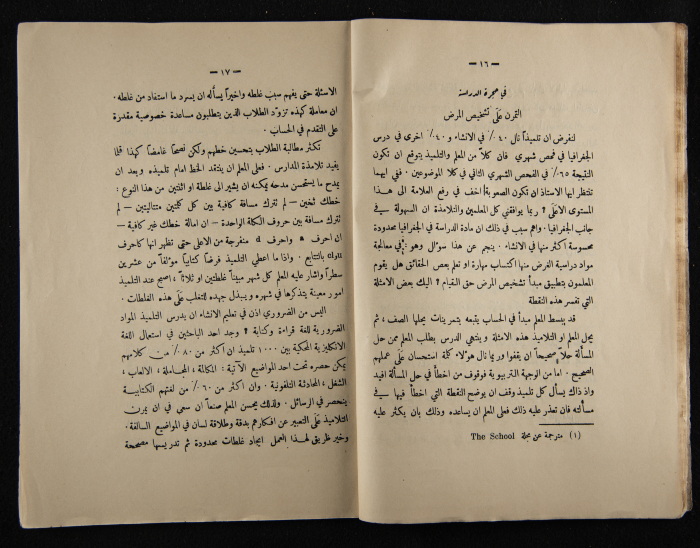 — ١٦ —
في حجرة الدراسة
التمرن على تشخيص المرض
لنفرض ان تلميذاً نال ٤٠٪ في الانشاء و ٤٠٪ اخرى في درس
الجغرافيا في فحص شهري فان كلاً من المعلم والتلميذ يتوقع ان تكون
النتيجة ٦٥٪ في الفحص الشهري الثاني في كلا الموضوعين . ففي ايهما
تنتظر ايها الاستاذ ان تكون الصعوبة اخف في رفع العلامة الى هذا
المستوى الاعلى ؟ ربما يوافقني كل المعلمين والتلامذة ان السهولة في
جانب الجغرافيا . واهم سبب في ذلك ان مادة الدراسة في الجغرافيا محدودة
محسوسة اكثر منها في الانشاء . ينجم عن هذا سؤال وهو : في معالجة
مواد دراسية الغرض منها اكتساب مهارة او تعلم بعض الحقائق هل يقوم
المعلمون بتطبيق مبدأ تشخيص المرض حق القيام ؟ اليك بعض الامثلة
التي تفسر هذه النقطة
قد يبسط المعلم مبدأ في الحساب يتبعه بتمرينات يحلها الصف ، ثم
يحل المعلم او التلاميذ هذه الامثلة وينتهي الدرس بطلب المعلم ممن حل
المسألة حلاً صحيحاً ان يقفوا وربما نال هؤلاء كلمة استحسان على عملهم
الصحيح . اما من الوجهة التربيوية فوقوف من اخطأ في حل المسألة افيد
واذ ذاك يسأل كل تلميذ وقف ان يوضح النقطة التي اخطأ فيها في
مسألته فان تعذر عليه ذلك فعلى المعلم ان يساعده وذلك بان يكثر عليه
(١) مترجمة عن مجلة The School
— ١٧ —
الاسئلة حتى يفهم سبب غلطه واخيراً يسأله ان يسرد ما استفاد من غلطه .
ان معاملة كهذه تزوّد الطلاب الذين يتطلبون مساعدة خصوصية مقدرة
على التقدم في الحساب .
تكثر مطالبة الطلاب بتحسين خطهم ولكن نصحاً غامضاً كهذا قلما
يفيد تلامذة المدارس . فعلى المعلم ان ينتقد الخط امام تلاميذه وبعد ان
يمدح ما يستحسن مدحه يمكنه ان يشير الى غلطة او اثنتين من هذا النوع :
خطك ثخين – لم تترك مسافة كافية بين كل كلمتين متتاليتين – لم
تترك مسافة بين حروف الكلمة الواحدة – ان امالة خطك غير كافية –
ان احرف a واحرف d منفرجة من الاعلى حتى تظهر انها كاحرف
بالتتابع . واذا ما اعطي التلميذ فرضاً كتابياً مؤلفاً من عشرين
سطراً واشار عليه المعلم كل شهر مبيناً غلطتين او ثلاثاً ، اصبح عند التلميذ
امور معينة يتذكرها في شهره ويبذل جهده للتغلب على هذه الغلطات .
اليس من الضروري اذن في تعليم الانشاء ان يدرس التلميذ المواد
الضرورية للغة قراءة وكتابة ؟ وجد احد الباحثين في استعمال اللغة
الانكليزية المحكية بين ١٠٠٠ تلميذ ان اكثر من ٨٠٪ من كلامهم
يمكن حصره تحت احد المواضيع الآتية : المكالمة ، المجاملة ، الالعاب ،
الشغل ، المحادثة التلفونية . وان اكثر من ٦٠٪ من لغتهم الكتابية
ينحصر في الرسائل . ولذلك يحسن المعلم صنعاً ان سعى في ان يمرن
التلاميذ على التعبير عن افكارهم بدقة وطلاقة لسان في المواضيع السالفة .
وخير طريق لهذا العمل ايجاد غلطات محدودة ثم تدريسها مصححة